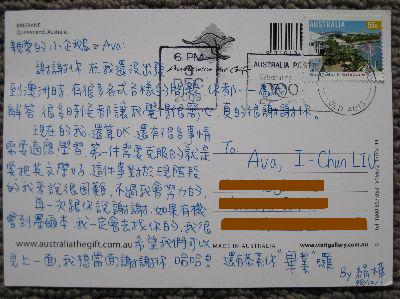 BRISBANE
Queensland, Australia
親愛的小企鵝 Ava:
謝謝你在我還沒出發
到澳洲時有很多各式各樣的問題你都一一為我
解答 很多時候都讓我覺得很窩心,真的很謝謝你。
現在的我,還算OK 還有很多事情
需要適應學習,第一件需要克服的就是
要把英文學好,這件事對於現階段
的我來說很困難,不過我會努力的,
再一次跟你說謝謝,如果有機
會到墨爾本,我一定會去找你的,我很
希望我們可以
見上一面,我想當面謝謝你 哈哈!
還有恭喜你"畢業"囉
By 娟樺
6 PM
AUSTRALIA POST
AUSTRALIA
55c
To
Ava, I-Chun LIU
www.australiathegift.com.au
MADE IN AUSTRALIA
www.visitgallery.com.au